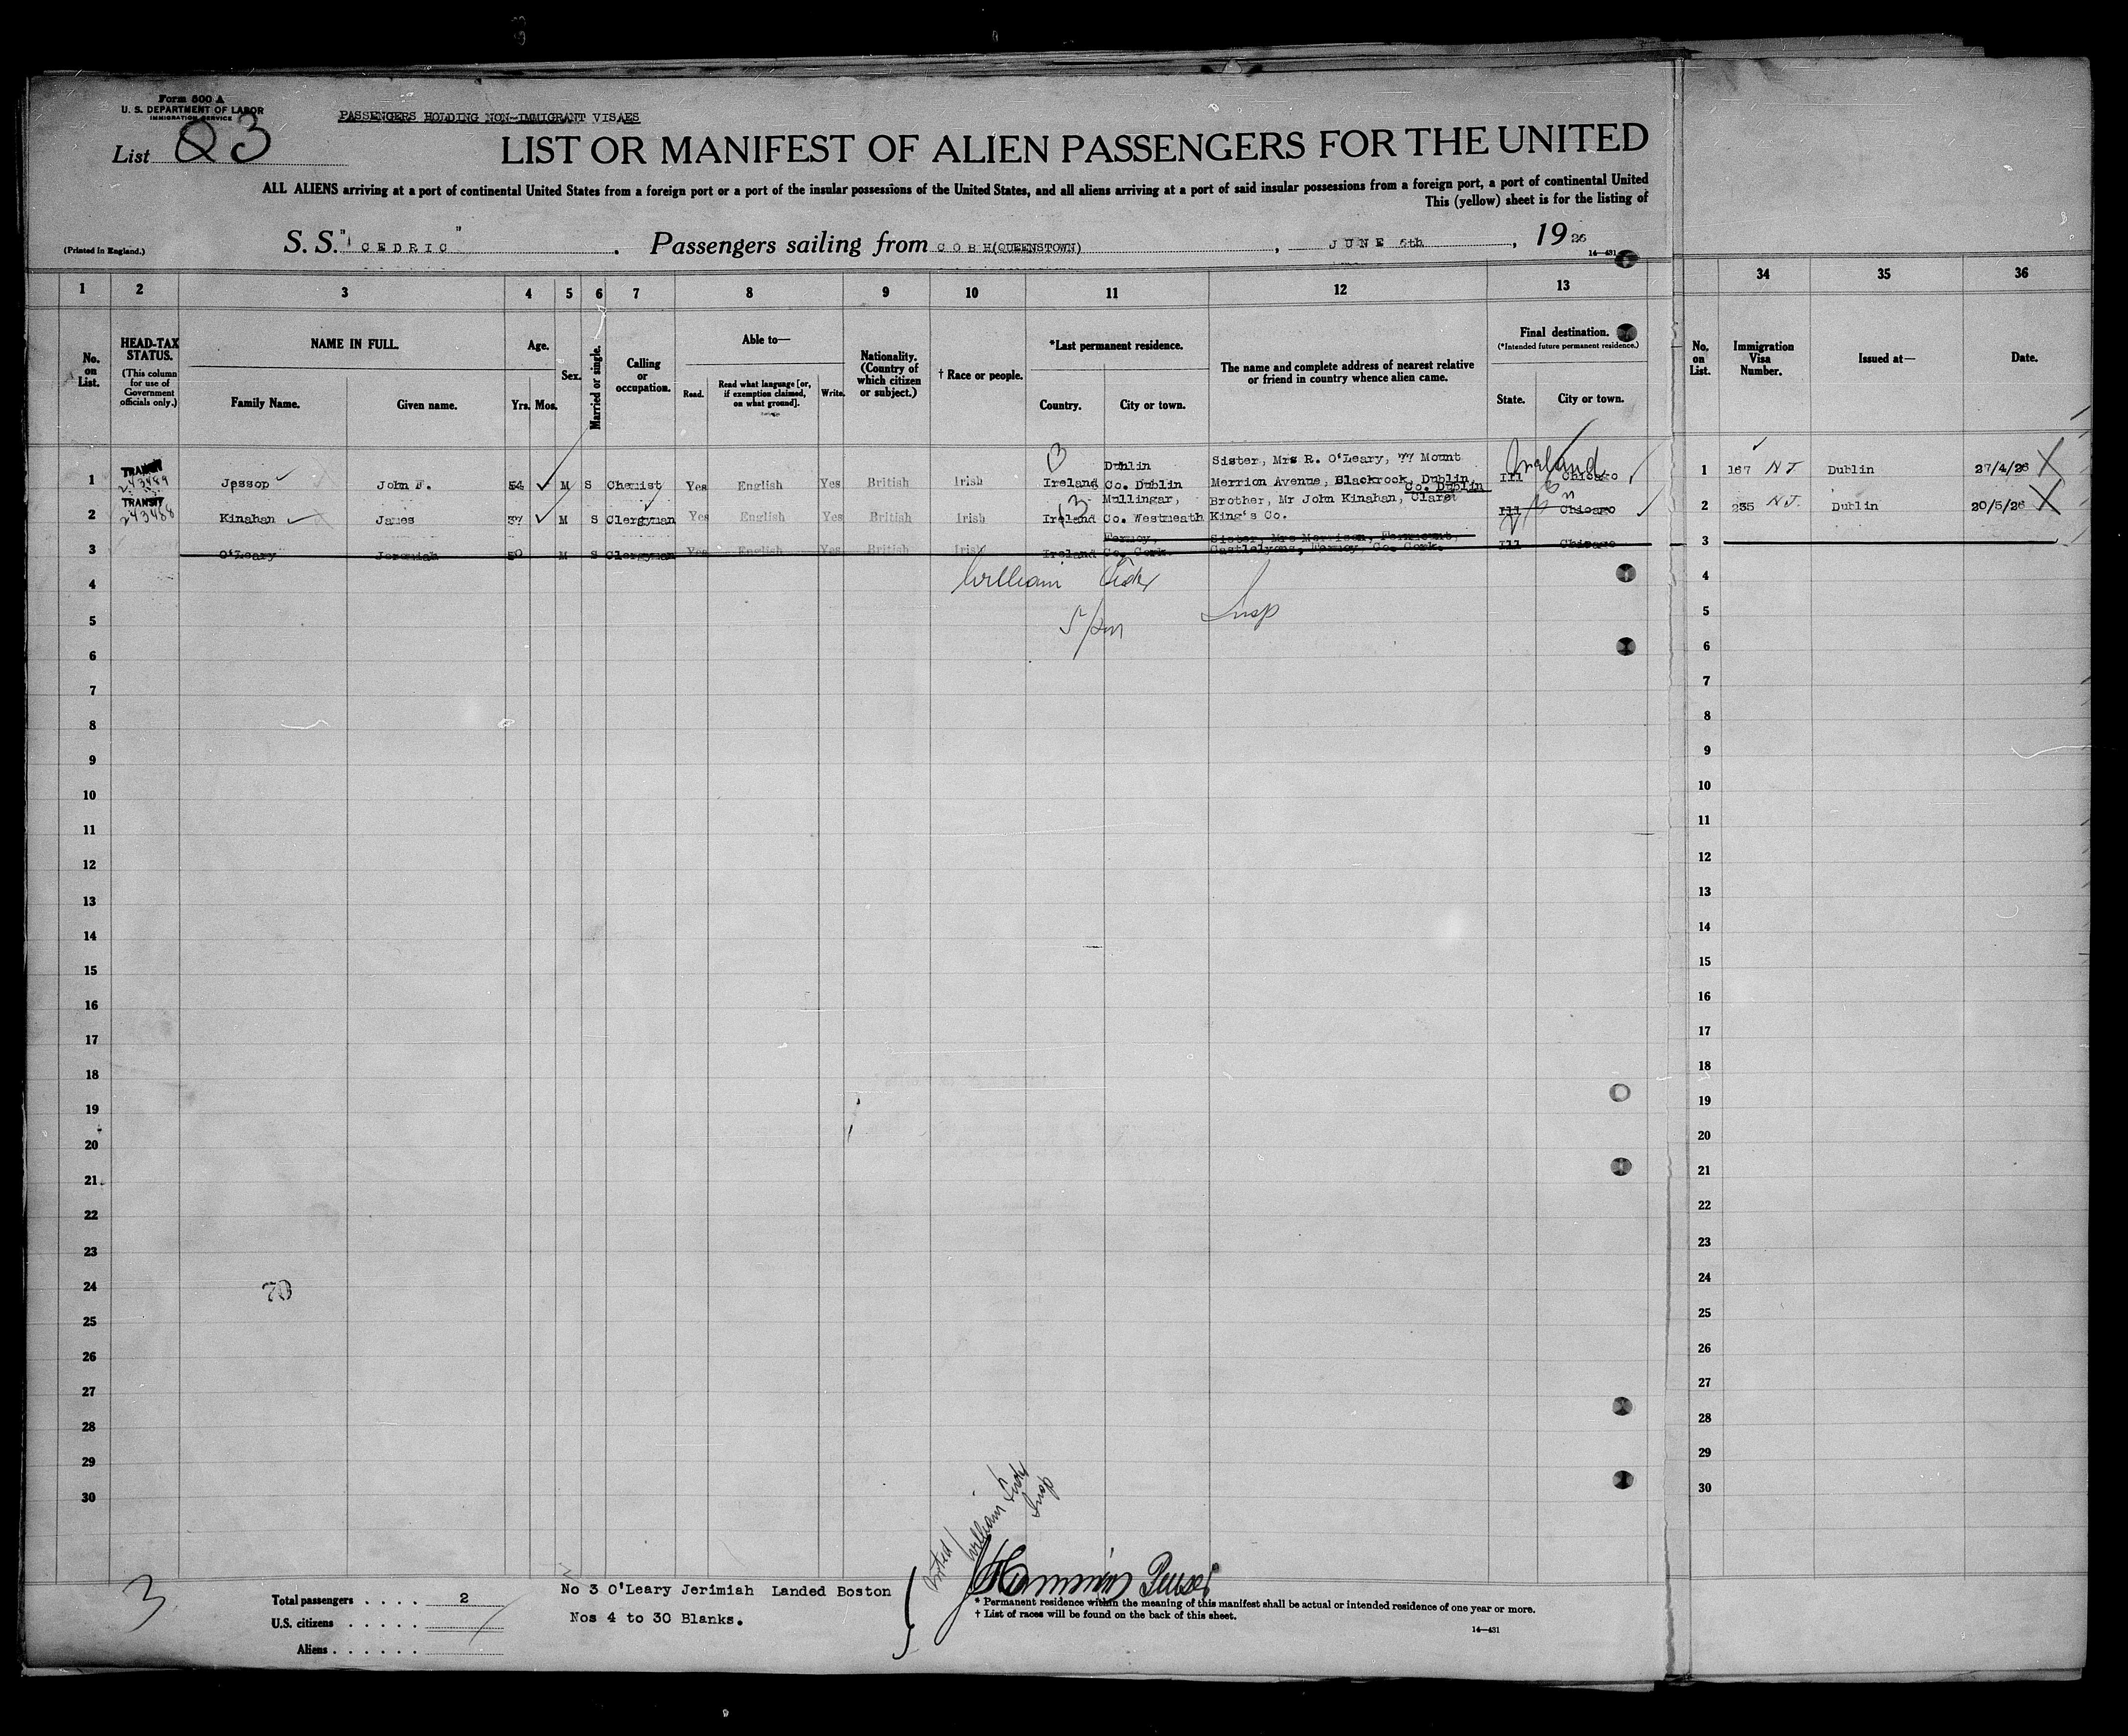 Form 500 A
U. S. DEPARTMENT OF LABOR
IMMIGRATION SERVICE
PASSENGERS HOLDING NON-IMMIGRANT VISAES
List Q3
LIST OR MANIFEST OF ALIEN PASSENGERS FOR THE UNITED
ALL ALIENS arriving at a port of continental United States from a foreign port or a port of the insular possessions of the United States, and all aliens arriving at a port of said insular possessions from a foreign port, a port of continental United
This (yellow) sheet is for the listing of
(Printed in England.)
S. S. "CEDRIC". Passengers sailing from COBH(QUEENSTOWN), JUNE 6th, 1926
14—431
1 2 3 4 5 6 7 8 9 10 11 12 13 34 35 36
No. on List.
HEAD-TAX STATUS. (This column for use of Government officials only.)
NAME IN FULL.
Family Name. Given name.
Age.
Yrs. Mos.
Sex.
Married or single.
Calling or occupation.
Able to—
Read. Read what language [or, if exemption claimed, on what ground]. Write.
Nationality. (Country of which citizen or subject.)
† Race or people.
*Last permanent residence.
Country. City or town.
The name and complete address of nearest relative or friend in country whence alien came.
Final destination.
(*Intended future permanent residence.)
State. City or town.
No. on List.
Immigration Visa Number.
Issued at—
Date.
1 TRANSIT 243489 Jessop John F. 54 M S Chemist Yes English Yes British Irish Ireland Dublin Co. Dublin Sister, Mrs R. O'Leary, 77 Mount Merrion Avenue, Blackrock, Dublin Co. Dublin Ill Chicago Ireland 1 167 N I Dublin 27/4/26
2 TRANSIT 243488 Kinahan James 37 M S Clergyman Yes English Yes British Irish Ireland Mullingar, Co. Westmeath Brother, Mr John Kinahan, Claret King's Co. Ill Chicago 2 235 N I. Dublin 20/5/26
3 O'Leary Jeremiah 50 M S Clergyman Yes English Yes British Irish Ireland Fermoy, Co. Cork. Sister, Mrs Morrison, Castlelyons, Fermoy, Co. Cork. Ill Chicago 3
4 William 4
5 Insp 5
6 6
7 7
8 8
9 9
10 10
11 11
12 12
13 13
14 14
15 15
16 16
17 17
18 18
19 19
20 20
21 21
22 22
23 23
24 70 24
25 25
26 26
27 27
28 28
29 29
30 30
William
Insp
3
Total passengers . . . . 2
U.S. citizens . . . . .
Aliens . . . . . .
No 3 O'Leary Jerimiah Landed Boston
Nos 4 to 30 Blanks.
* Permanent residence within the meaning of this manifest shall be actual or intended residence of one year or more.
† List of races will be found on the back of this sheet.
14—431